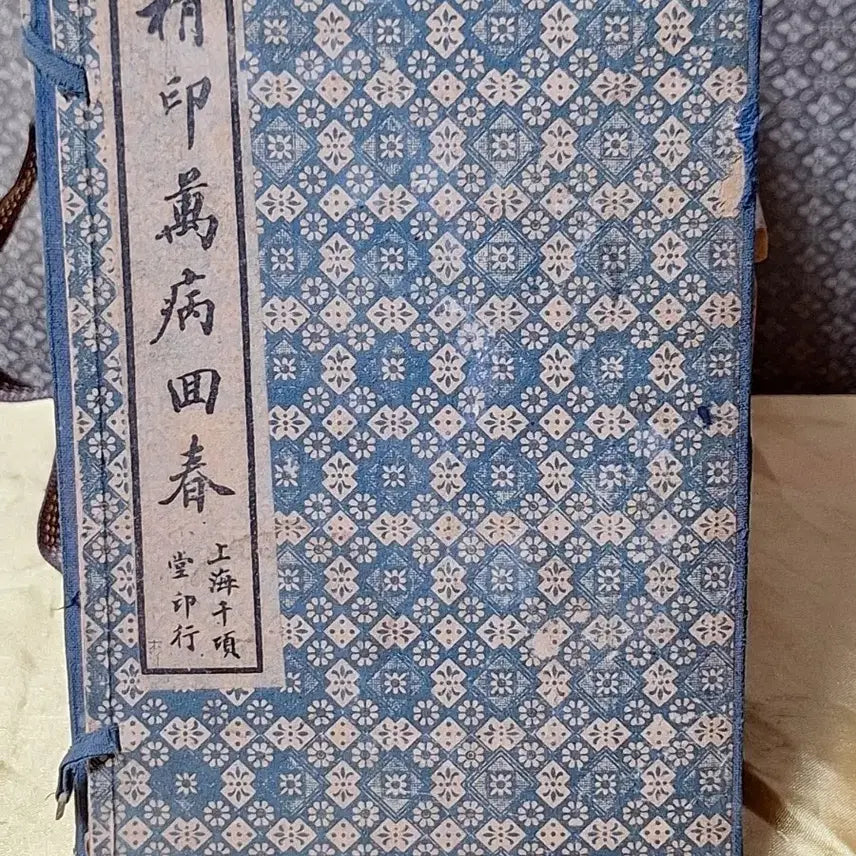 精印萬病回春
上海千頃
堂印行